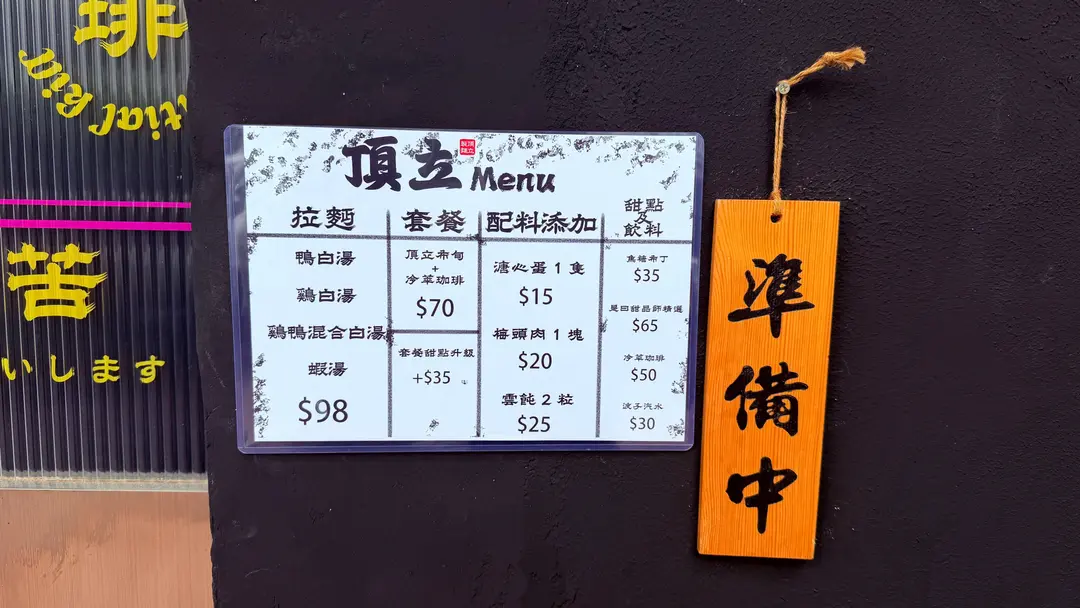 琲
苦
いします
頂立 Menu
頂立
製麵
拉麪
鴨白湯
鷄白湯
鷄鴨混合白湯
蝦湯
$98
套餐
頂立布甸
+
冷萃咖琲
$70
套餐甜點升級
+$35
配料添加
溏心蛋 1 隻
$15
梅頭肉 1 塊
$20
雲飩 2 粒
$25
甜點
及
飲料
焦糖布丁
$35
是日甜品師精選
$65
冷萃咖琲
$50
波子汽水
$30
準備中